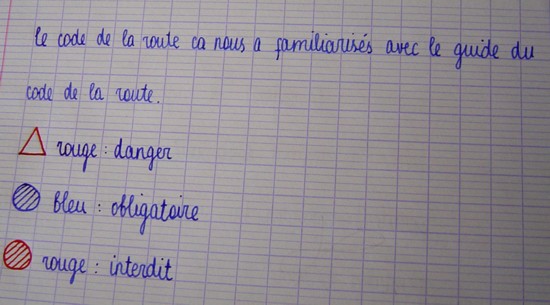 le code de la route ca nous a familiarisés avec le guide du
code de la route.
rouge : danger
bleu : obligatoire
rouge : interdit